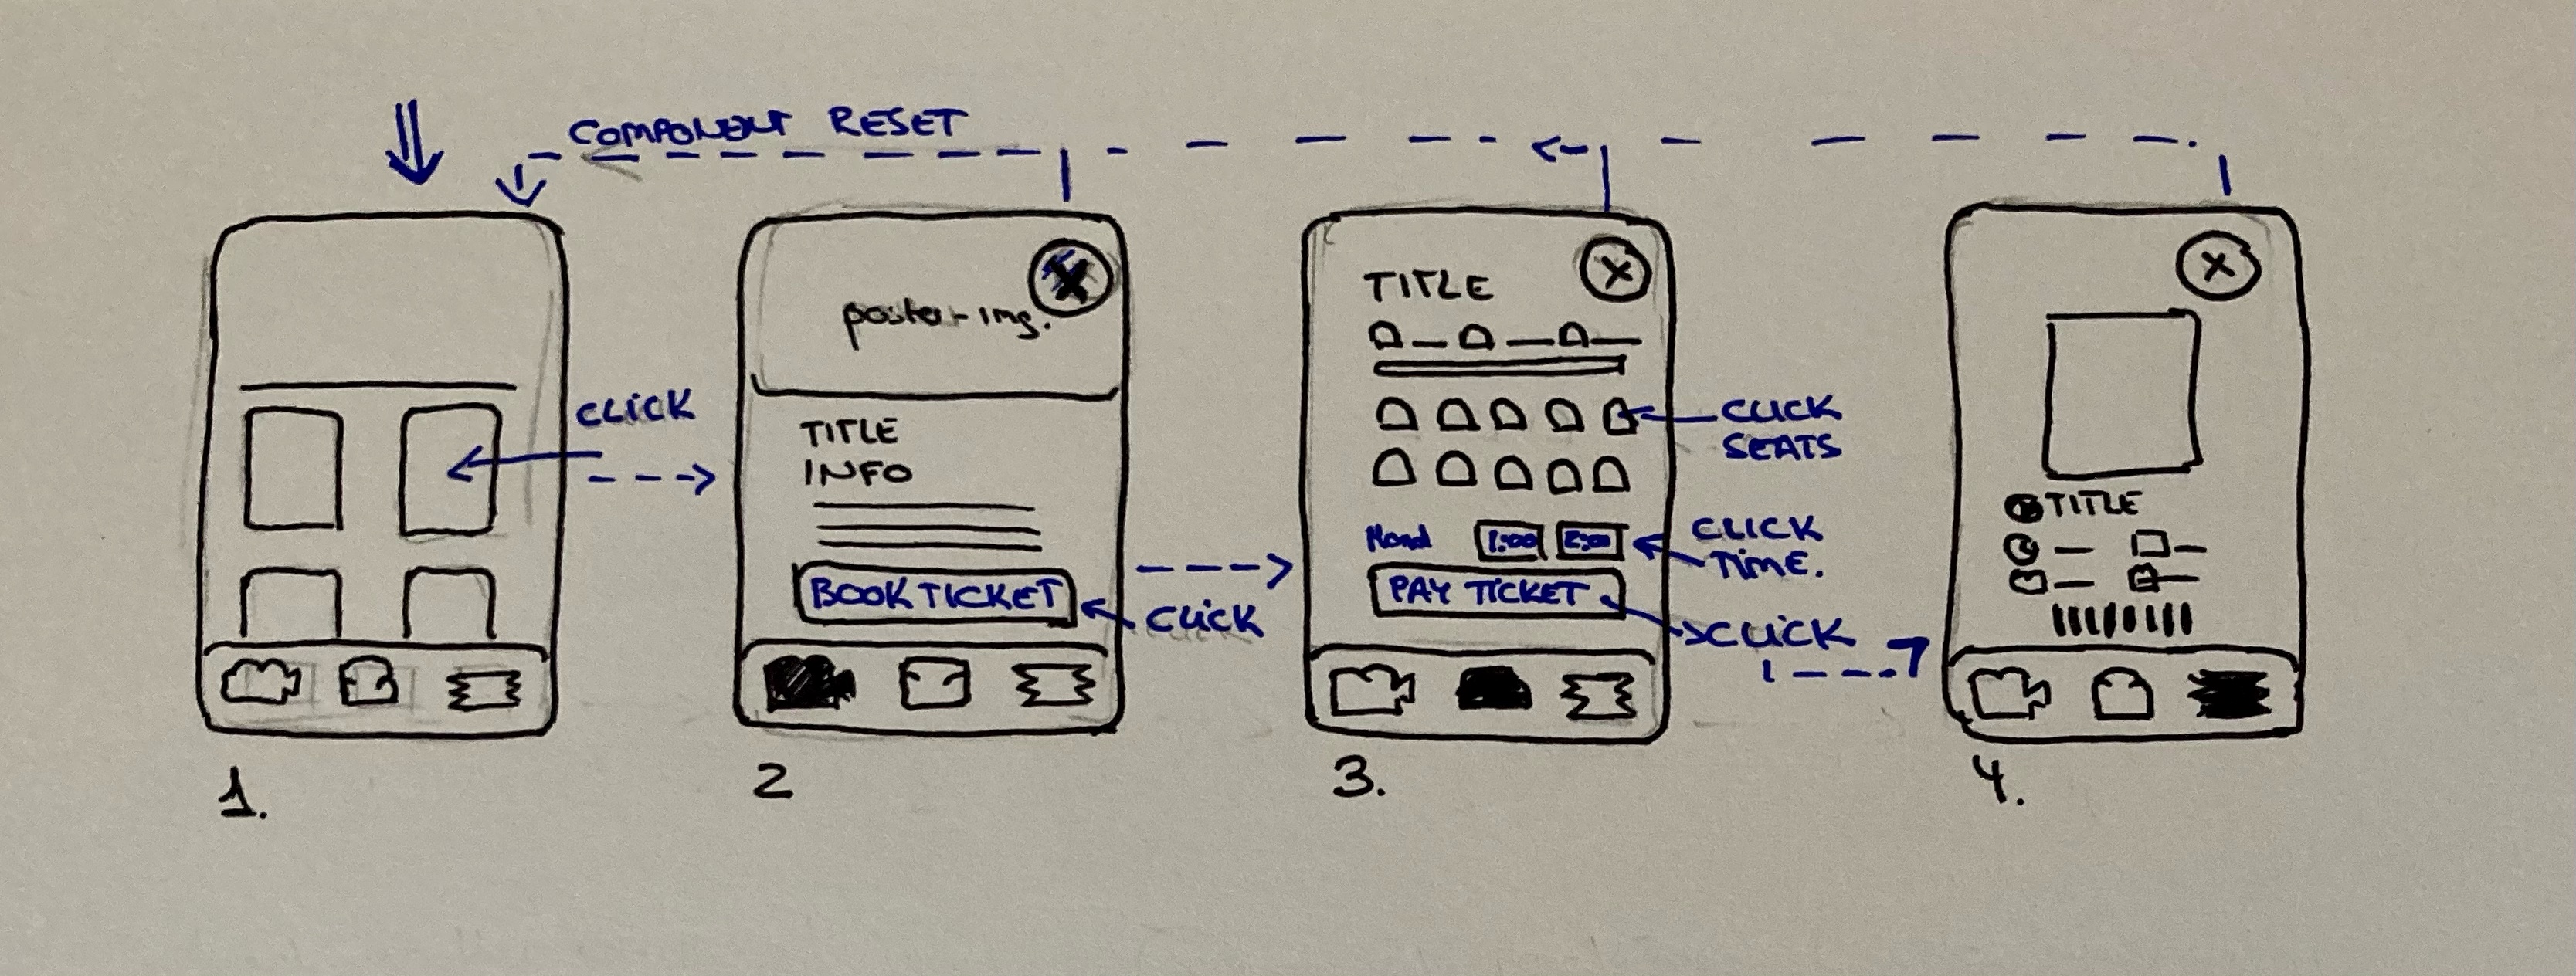 COMPONENT RESET
CLICK
poster-img.
X
TITLE
INFO
BOOK TICKET
CLICK
TITLE
X
CLICK
SEATS
1:00
2:00
CLICK
TIME.
PAY TICKET
CLICK
X
TITLE
1.
2
3.
4.